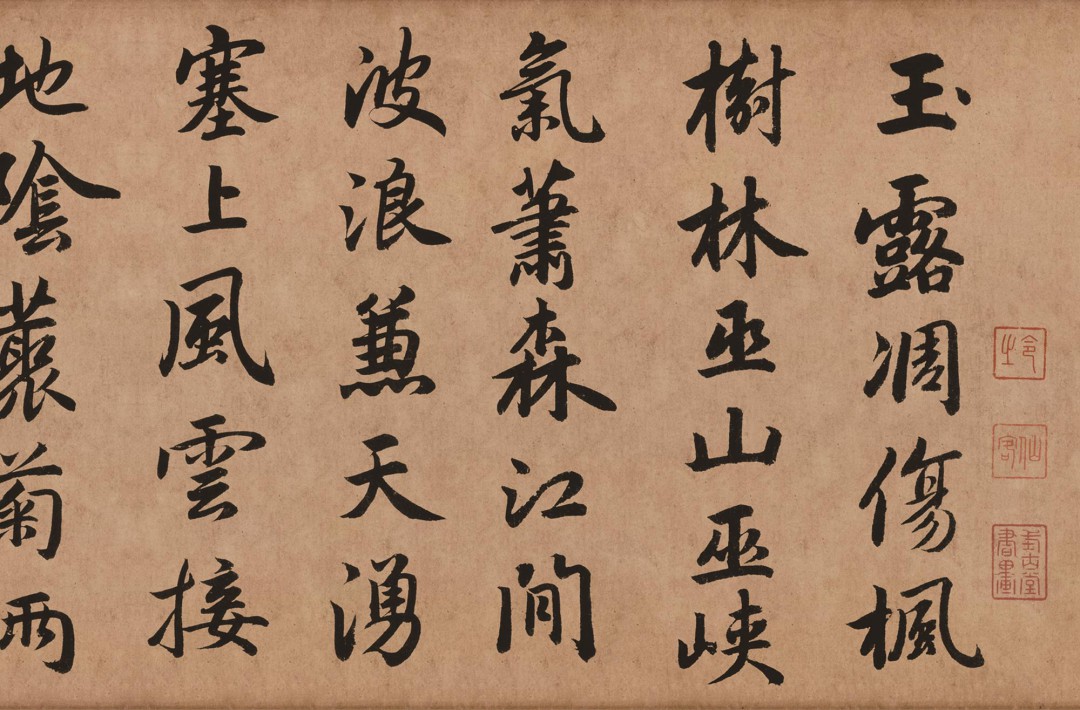 仙客
玉露凋傷楓
樹林巫山巫峽
氣蕭森江間
波浪兼天湧
塞上風雲接
地陰叢菊兩